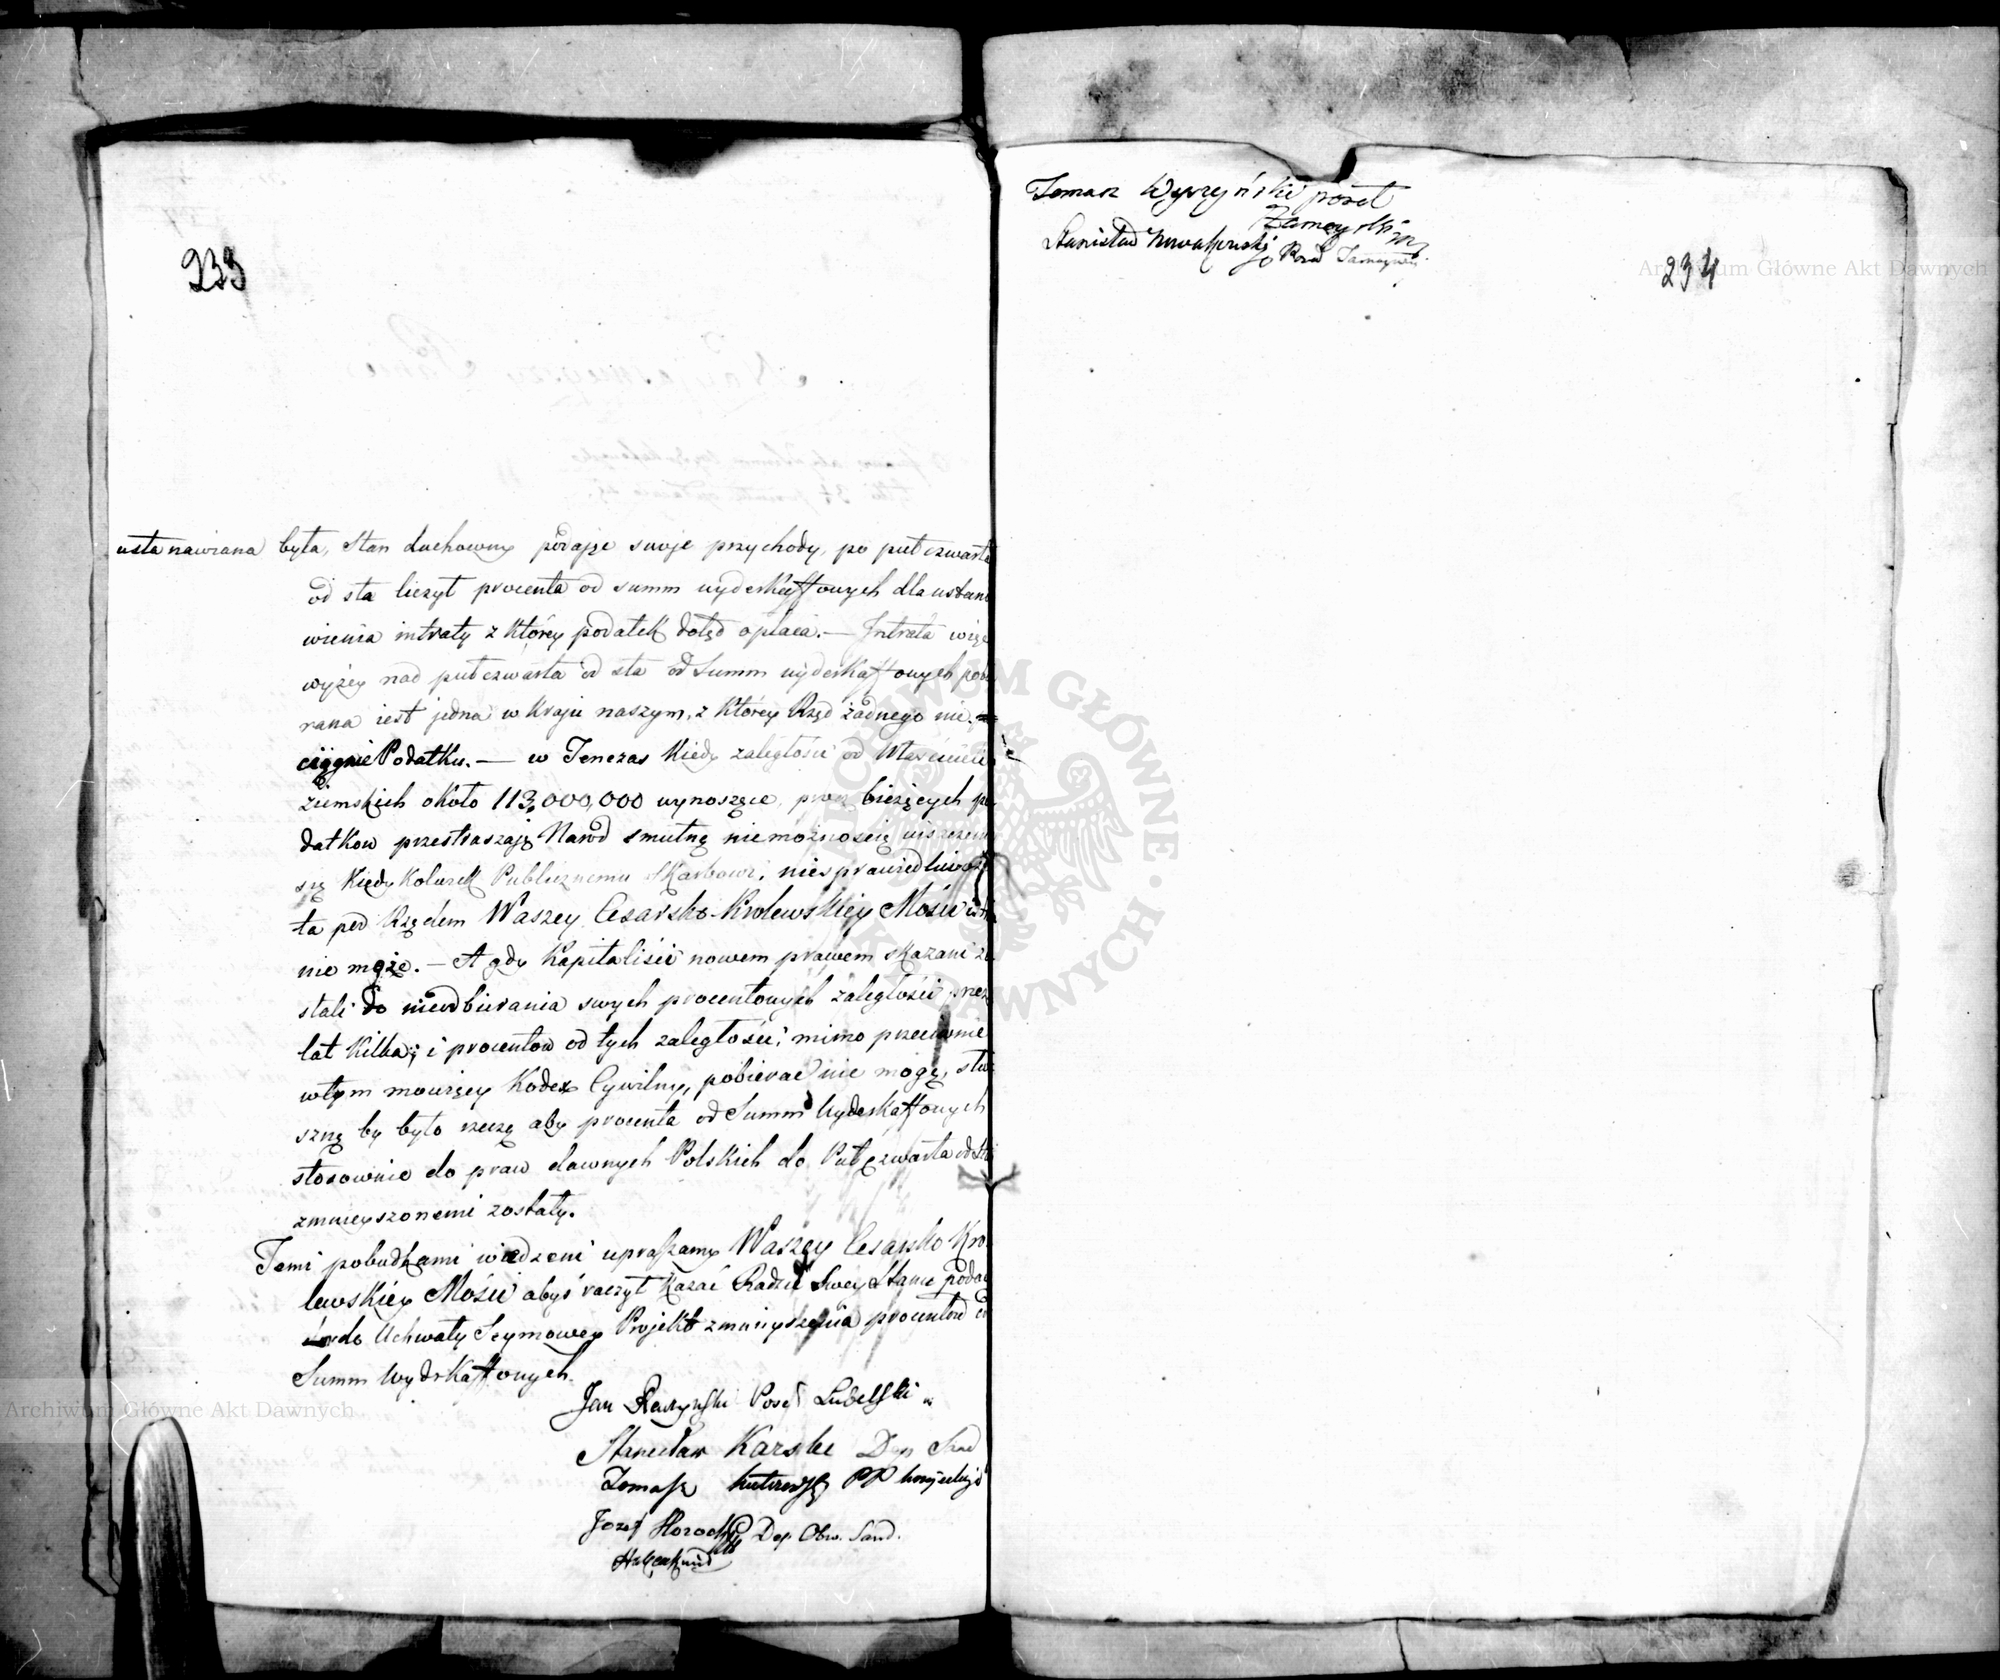 233
ustanawiana była, Stan duchowny podaiąc swoje przychody, po puł czwarta
od sta liczył procenta od summ wyderkaffowych dla ustano
wienia intraty z którey podatek dotąd opłaca. — Intrata więc
wyżey nad puł czwarta od sta od Summ wyderkaffowych pobie
rana iest jedna w Kraju naszym, z którey Rząd żadnego nie
ciągnie Podatku. — w Tenczas kiedy zaległości od Właścicieli
ziemskich około 113,000,000 wynoszące, procz bieżących po
datkow przestraszaią Narod smutną niemożnością uiszczenia
się kiedykolwiek Publicznemu Skarbowi, niesprawiedliwość
ta pod Rządem Waszey Cesarsko-Krolewskiey Mości istn
nie może. — A gdy Kapitaliści nowem prawem skazani zo
stali do nieodbierania swych procentowych zaległości przez
lat kilka; i procentow od tych zaległości, mimo przeciwnie
wtym mowiący Kodex Cywilny, pobierać nie mogą, słu
szną by było rzeczą aby procenta od Summ Wyderkaffowych
stosownie do praw dawnych Polskich do Puł czwarta od Sta
zmnieyszonemi zostały.
Temi pobudkami wiedzeni upraszamy Waszey Cesarsko Kro
lewskiey Mości abyś raczył kazać Radzie Swey Stanu podać
do Uchwały Seymowey Projekt zmnieyszenia procentow od
Summ Wyderkaffowych.
Jan Poseł Lubelski
Stanisław Karski Dep Sand
Tomasz PP
Jozef Dep. Obw. Sand.
Tomasz Wyrzyński poseł
Zamoyski
Stanisław Nowakowski Poseł
234
Archiwum Główne Akt Dawnych
ARCHIWUM GŁÓWNE AKT DAWNYCH
Archiwum Główne Akt Dawnych